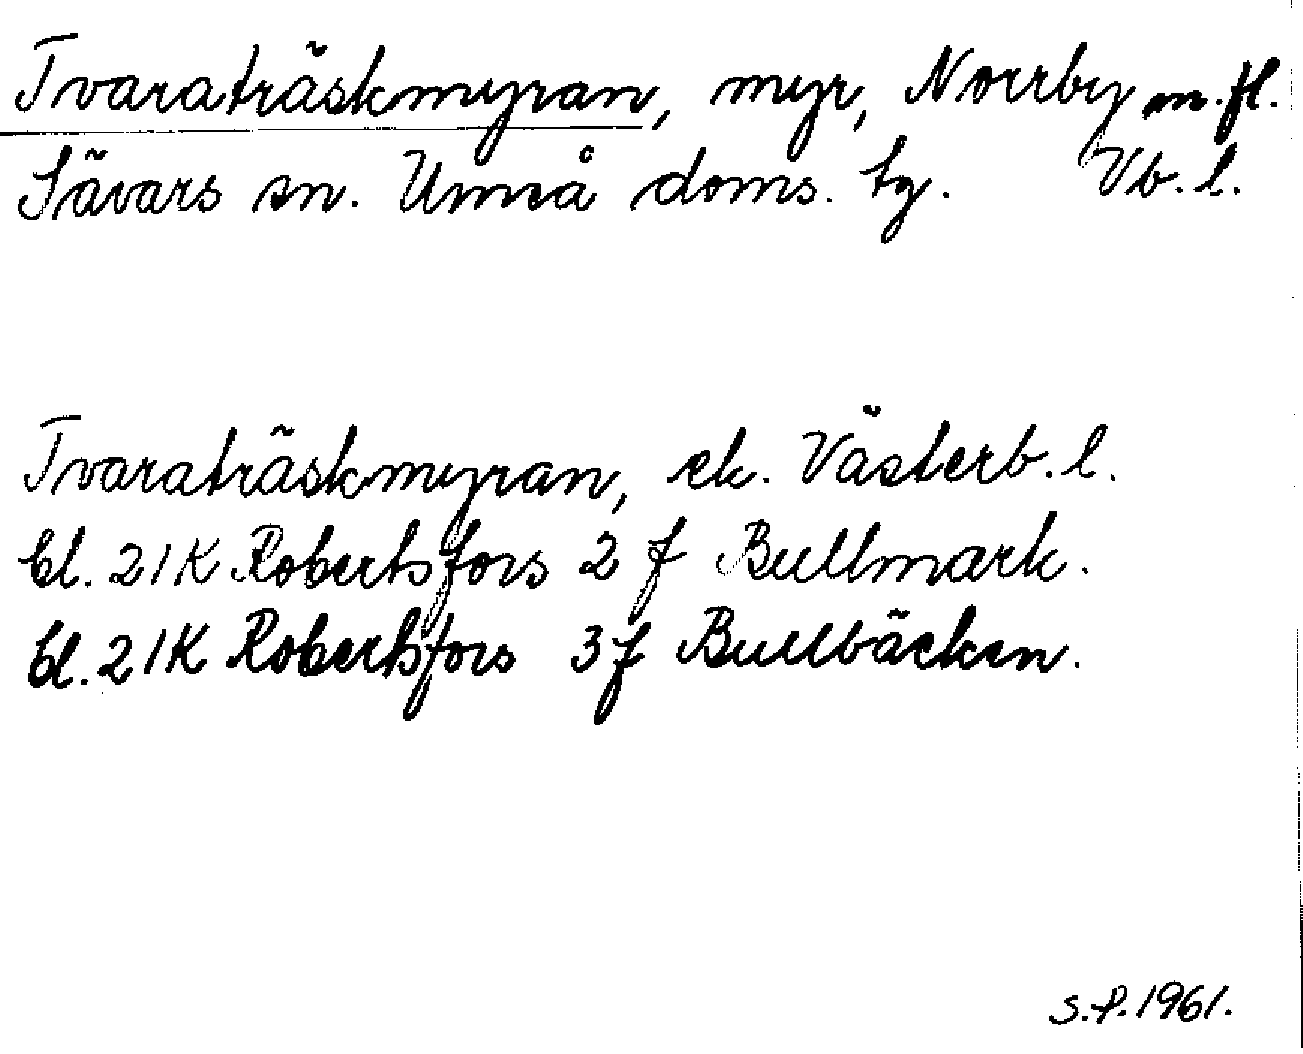 Tvaraträskmyran, myr, Norrby m.fl.
Sävars sn. Umeå doms. tg. Vb.l.
Tvaraträskmyran, ek. Västerb.l.
bl. 21K Robertsfors 2 f Bullmark.
bl. 21K Robertsfors 3 f Bullbäcken.
S.P. 1961.